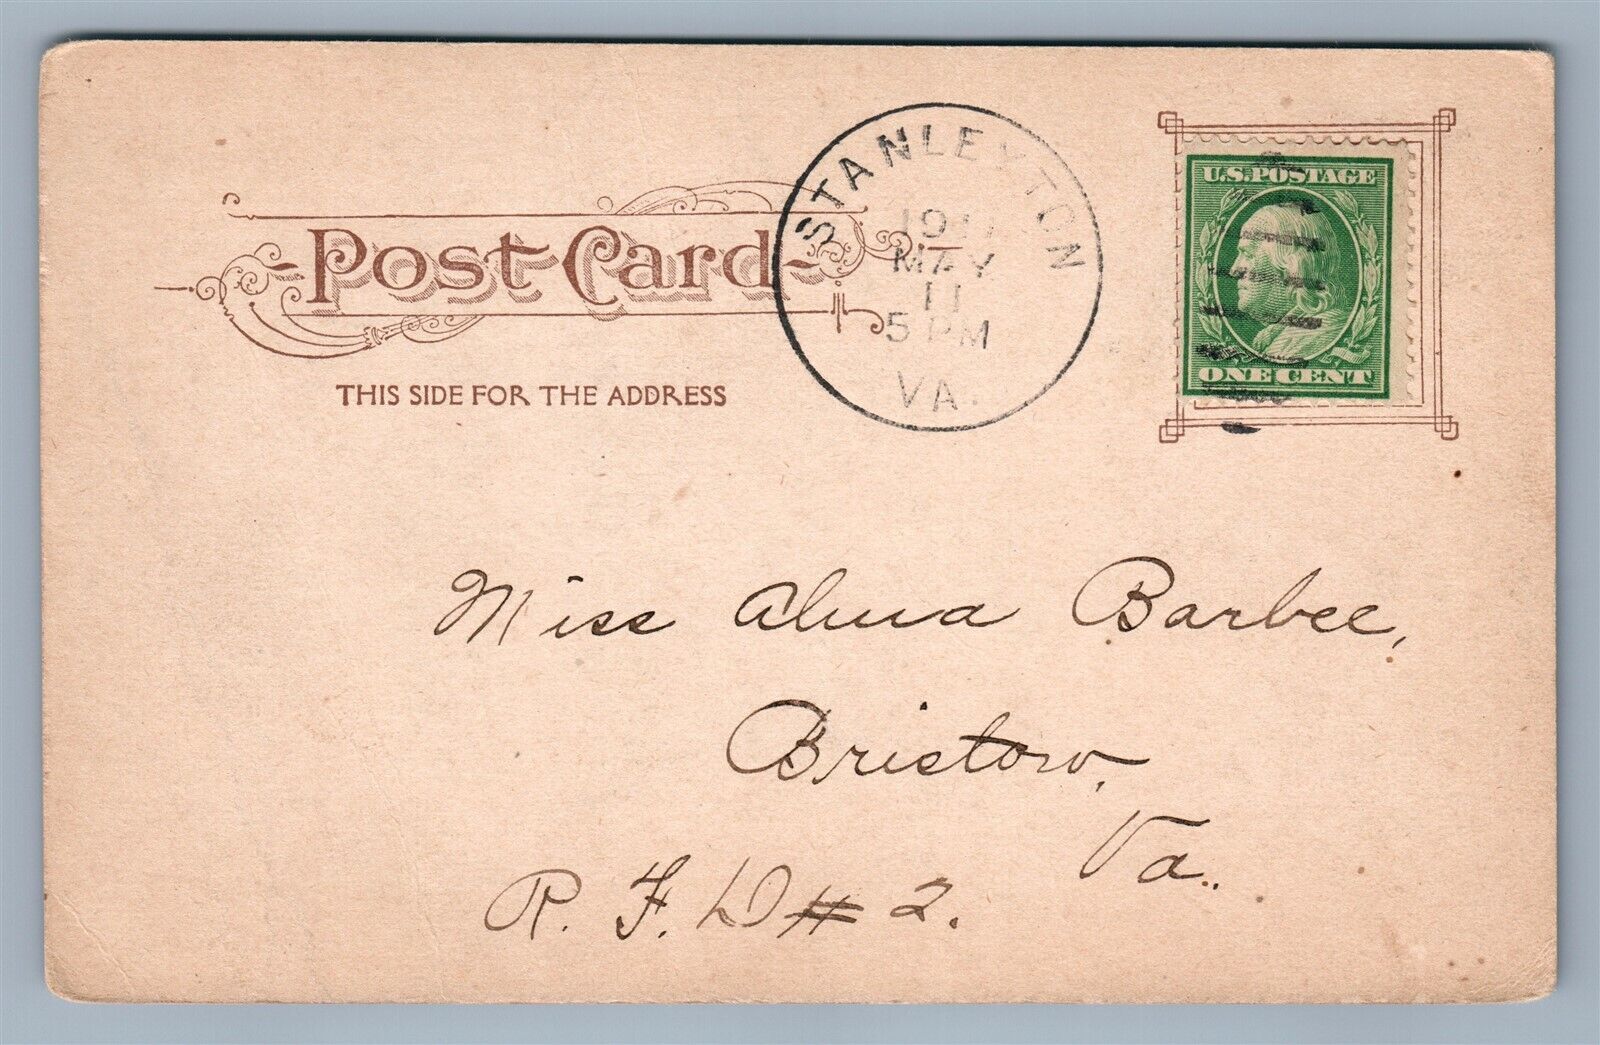 Post Card
THIS SIDE FOR THE ADDRESS
STANLEYTON
1911
MAY
11
5 PM
VA.
U.S. POSTAGE
ONE CENT
Miss Alma Barbee,
Bristow,
Va.
R. F. D # 2.